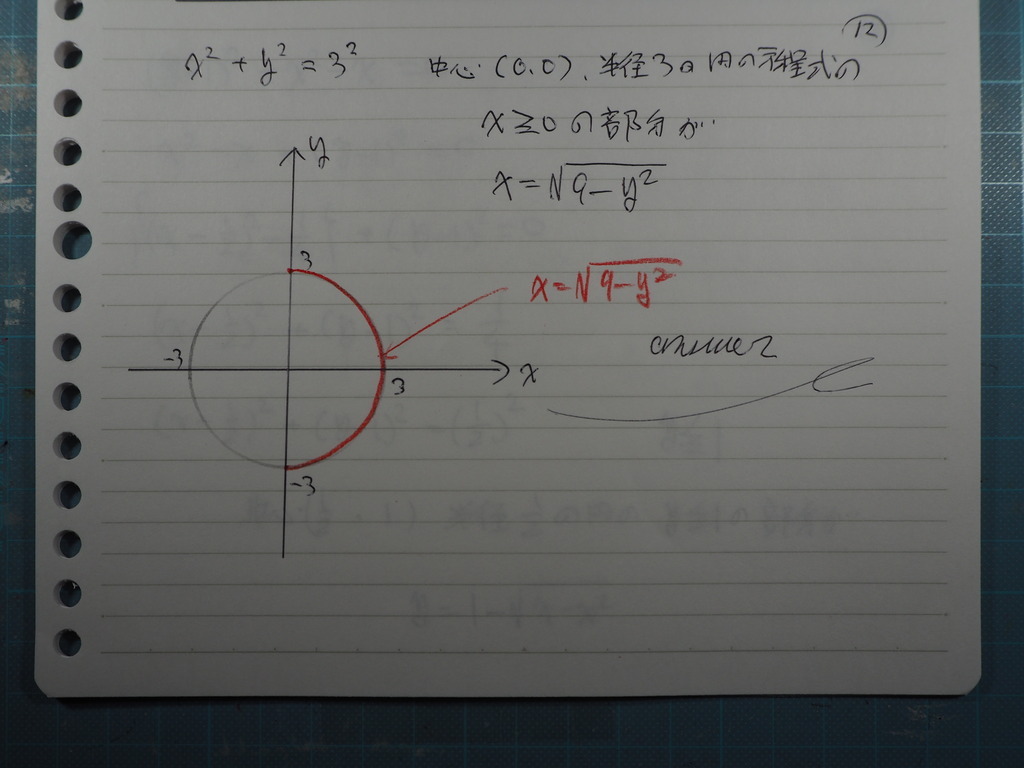 12
x² + y² = 3²
中心 (0.0)、半径3の円の方程式の
x≧0の部分が
x = √9-y²
y
3
x = √9-y²
answer
-3
3
x
-3